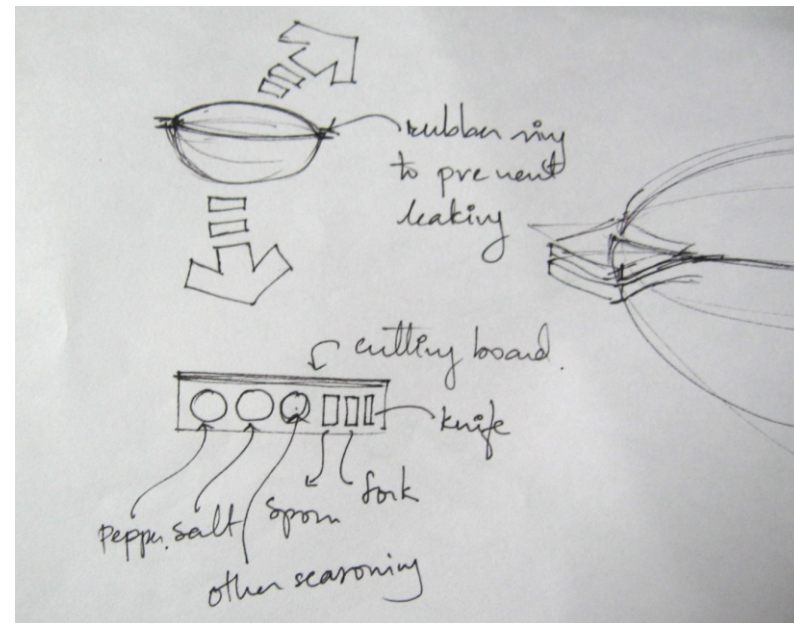 rubber ring
to prevent
leaking
cutting board.
knife
fork
spoon
pepper. salt
other seasoning